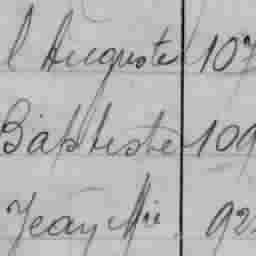 l Auguste 107
Baptiste 109
Jean Mie 92